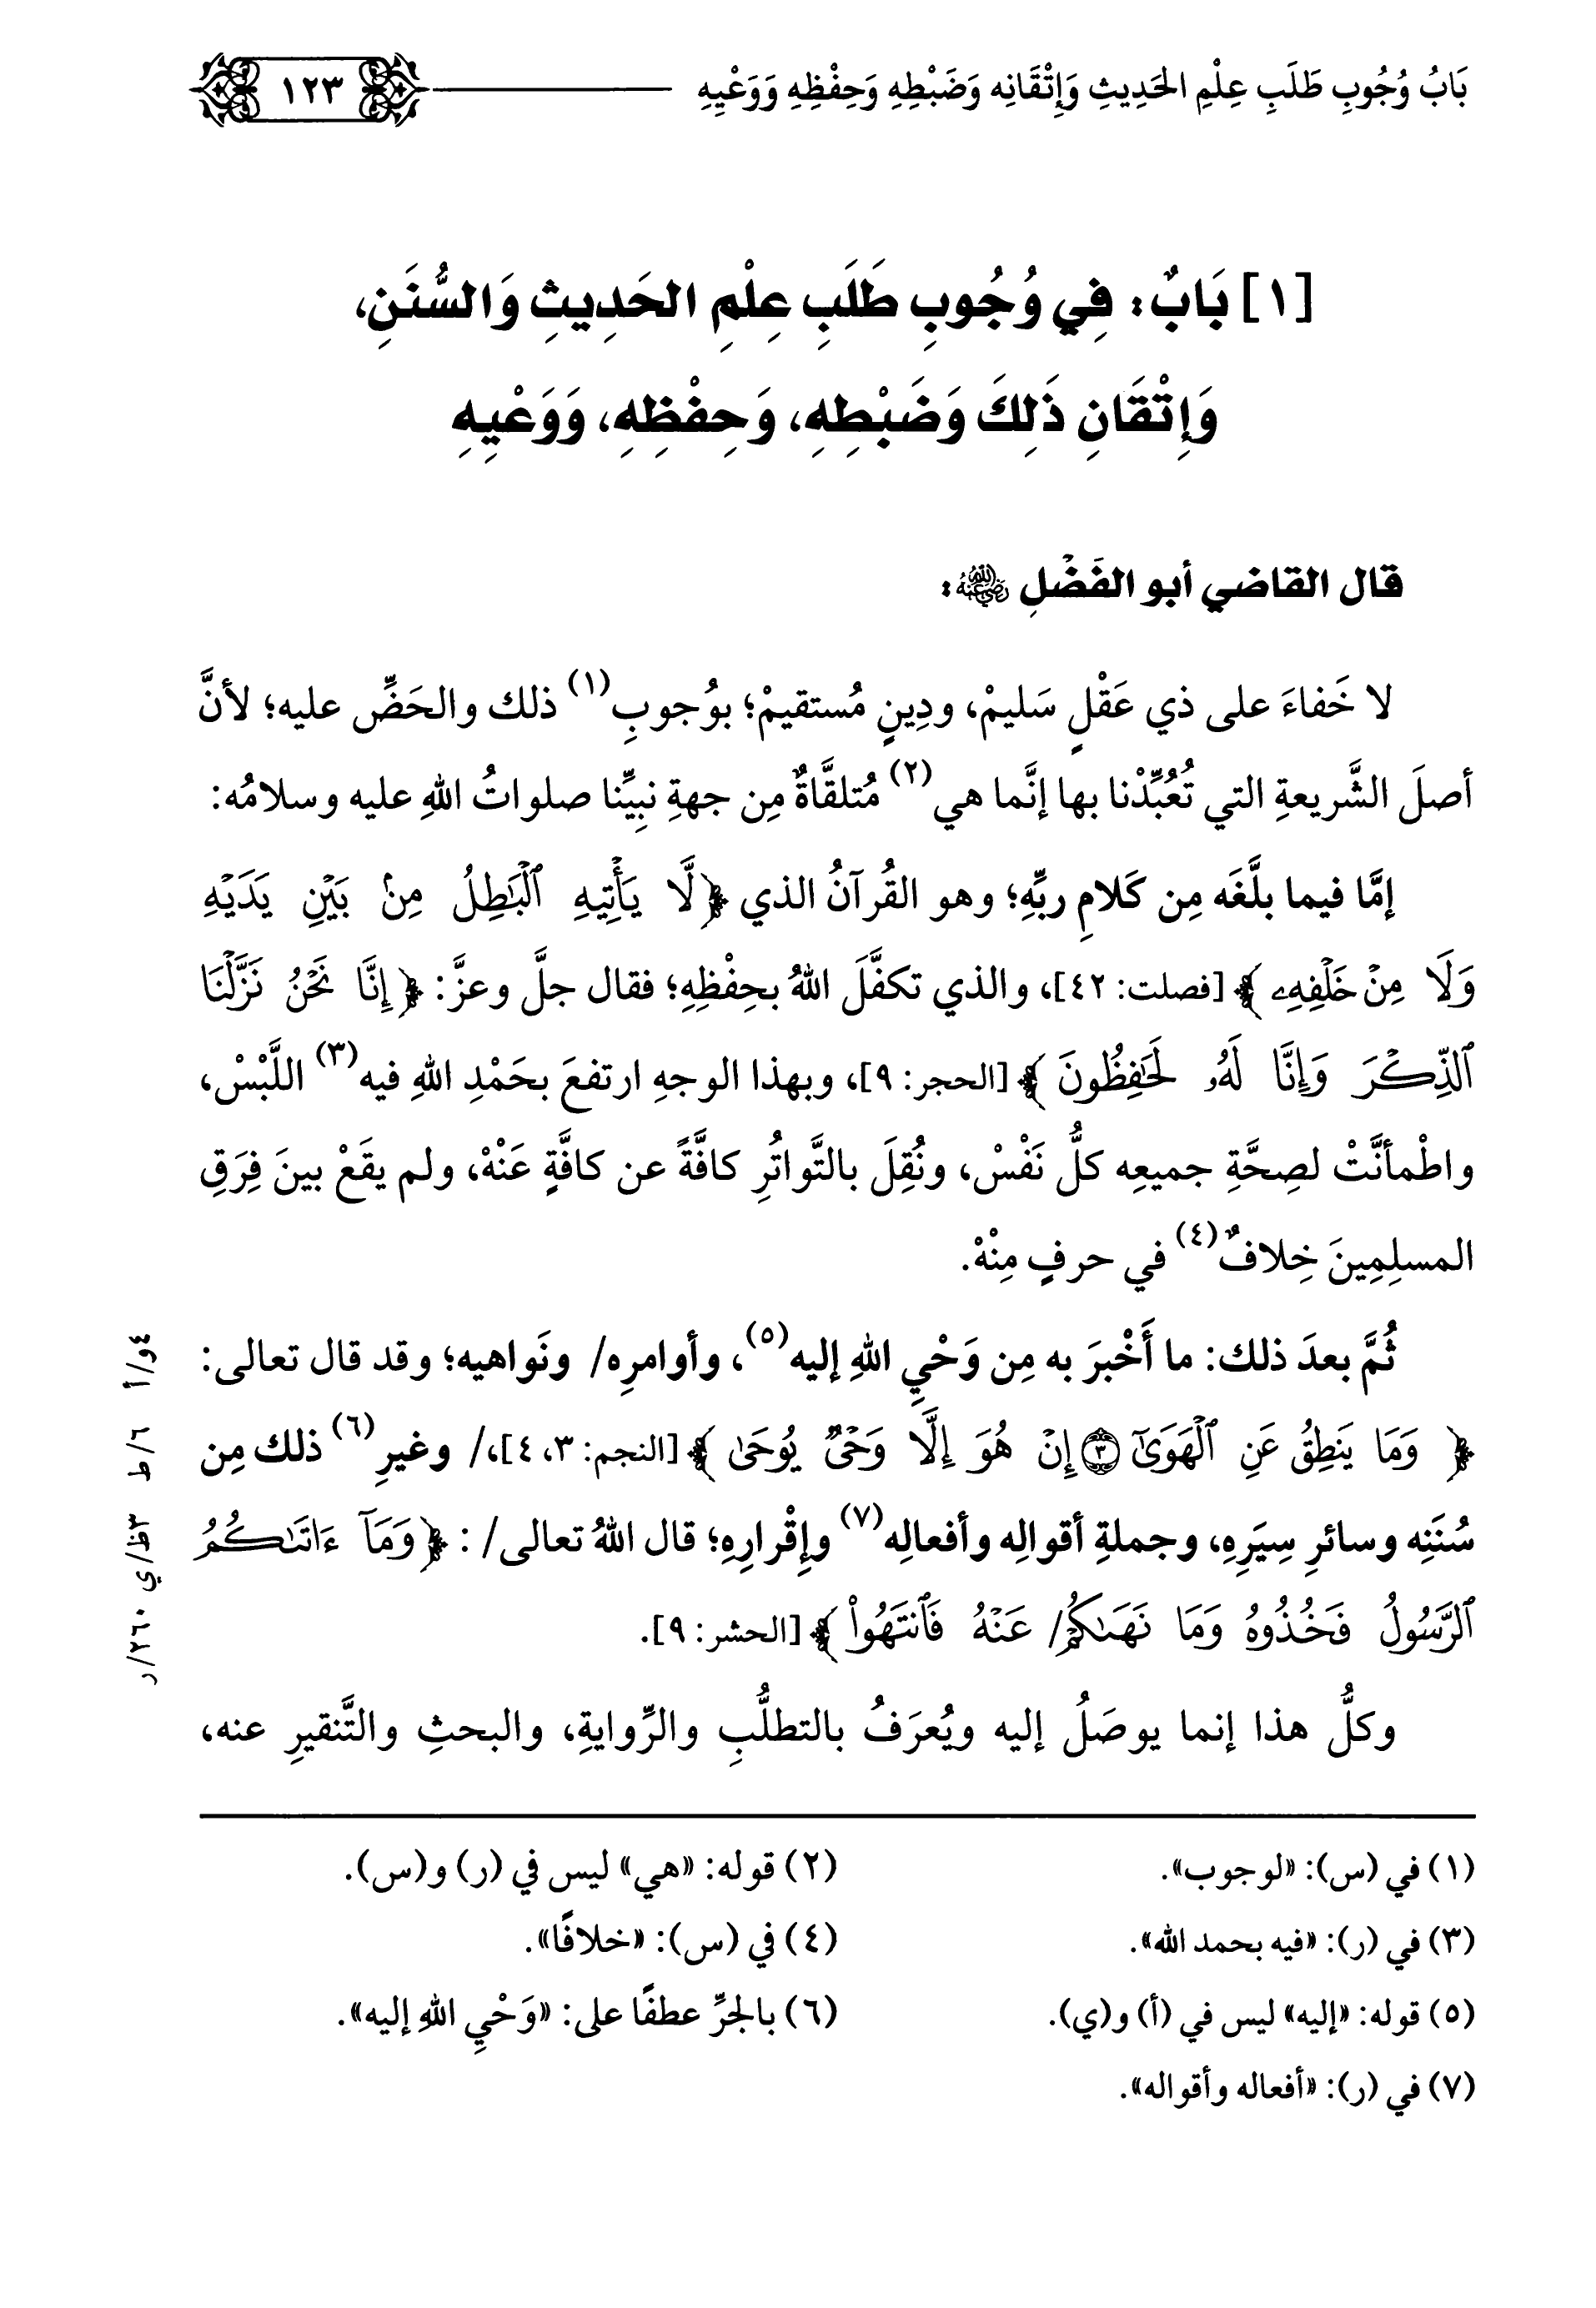 بَابُ وُجُوبِ طَلَبِ عِلْمِ الحَدِيثِ وَإِتْقَانِه وَضَبْطِهِ وَحِفْظِهِ وَوَعْيِهِ ١٢٣
[١] بَابٌ: فِي وُجُوبِ طَلَبِ عِلْمِ الحَدِيثِ وَالسُّنَنِ،
وَإِتْقَانِ ذَلِكَ وَضَبْطِهِ، وَحِفْظِهِ، وَوَعْيِهِ
قال القاضي أبو الفَضْلِ رضي الله عنه:
لا خَفاءَ على ذي عَقْلٍ سَليمْ، ودِينٍ مُستقيمْ؛ بوُجوبِ(١) ذلك والحَضِّ عليه؛ لأنَّ
أصلَ الشَّريعةِ التي تُعُبِّدْنا بها إنَّما هي(٢) مُتلقَّاةٌ مِن جهةِ نبيِّنا صلواتُ اللهِ عليه وسلامُه:
إمَّا فيما بلَّغَه مِن كَلامِ ربِّهِ؛ وهو القُرآنُ الذي ﴿لَّا يَأۡتِيهِ ٱلۡبَٰطِلُ مِنۢ بَيۡنِ يَدَيۡهِ
وَلَا مِنۡ خَلۡفِهِۦ﴾ [فصلت: ٤٢]، والذي تكفَّلَ اللهُ بحِفْظِهِ؛ فقال جلَّ وعزَّ: ﴿إِنَّا نَحۡنُ نَزَّلۡنَا
ٱلذِّكۡرَ وَإِنَّا لَهُۥ لَحَٰفِظُونَ﴾ [الحجر: ٩]، وبهذا الوجهِ ارتفعَ بحَمْدِ اللهِ فيه(٣) اللَّبْسْ،
واطْمأنَّتْ لصِحَّةِ جميعِه كلُّ نَفْسْ، ونُقِلَ بالتَّواتُرِ كافَّةً عن كافَّةٍ عَنْهْ، ولم يقَعْ بينَ فِرَقِ
المسلِمِينَ خِلافٌ(٤) في حرفٍ مِنْهْ.
ثُمَّ بعدَ ذلك: ما أَخْبرَ به مِن وَحْيِ اللهِ إليه(٥)، وأوامرِه/ ونَواهيه؛ وقد قال تعالى:
﴿وَمَا يَنطِقُ عَنِ ٱلۡهَوَىٰٓ ٣ إِنۡ هُوَ إِلَّا وَحۡيٞ يُوحَىٰ﴾ [النجم: ٣، ٤]،/ وغيرِ(٦) ذلك مِن
سُنَنِه وسائرِ سِيَرِهِ، وجملةِ أقوالِه وأفعالِه(٧) وإِقْرارِهِ؛ قال اللهُ تعالى/: ﴿وَمَآ ءَاتَىٰكُمُ
ٱلرَّسُولُ فَخُذُوهُ وَمَا نَهَىٰكُمۡ/ عَنۡهُ فَٱنتَهُواْ﴾ [الحشر: ٩].
وكلُّ هذا إنما يوصَلُ إليه ويُعرَفُ بالتطلُّبِ والرِّوايةِ، والبحثِ والتَّنقيرِ عنه،
٤و/أ ٦/ط ٣ظ/ي ٢٦٠/ر
(١) في (س): «لوجوب». (٢) قوله: «هي» ليس في (ر) و(س).
(٣) في (ر): «فيه بحمد الله». (٤) في (س): «خلافًا».
(٥) قوله: «إليه» ليس في (أ) و(ي). (٦) بالجرِّ عطفًا على: «وَحْيِ اللهِ إليه».
(٧) في (ر): «أفعاله وأقواله».